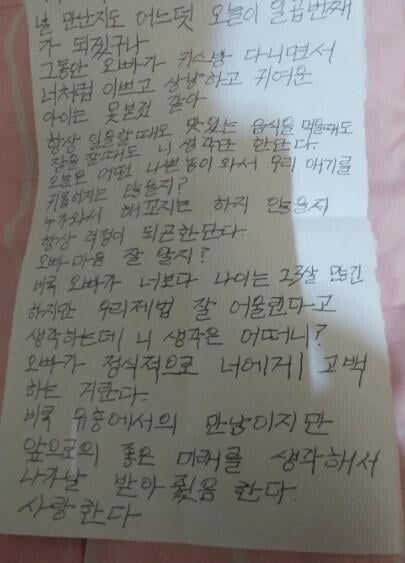 널 만난지도 어느덧 오늘이 일곱번째
가 되겠구나
그동안 오빠가 키스방 다니면서
너처럼 이쁘고 상냥하고 귀여운
아이는 못본것 같아
항상 일을할때도 맛있는 음식을 먹을때도
잠을 잘때도 니 생각만 한단다.
오늘은 어떤 나쁜놈이와서 우리 애기를
귀찮하지는 않을지?
누가와서 해꼬지는 하지 않을지
항상 걱정이 되곤한단다.
오빠 마음 잘 알지?
비록 오빠가 너보다 나이는 23살 많긴
하지만 우리제법 잘 어울린다고
생각하는데 니 생각은 어떠니?
오빠가 정식적으로 너에게 고백
하는 거란다.
비록 유흥에서의 만남이지만
앞으로의 좋은 미래를 생각해서
나가날 받아 줬음 한다
사랑한다